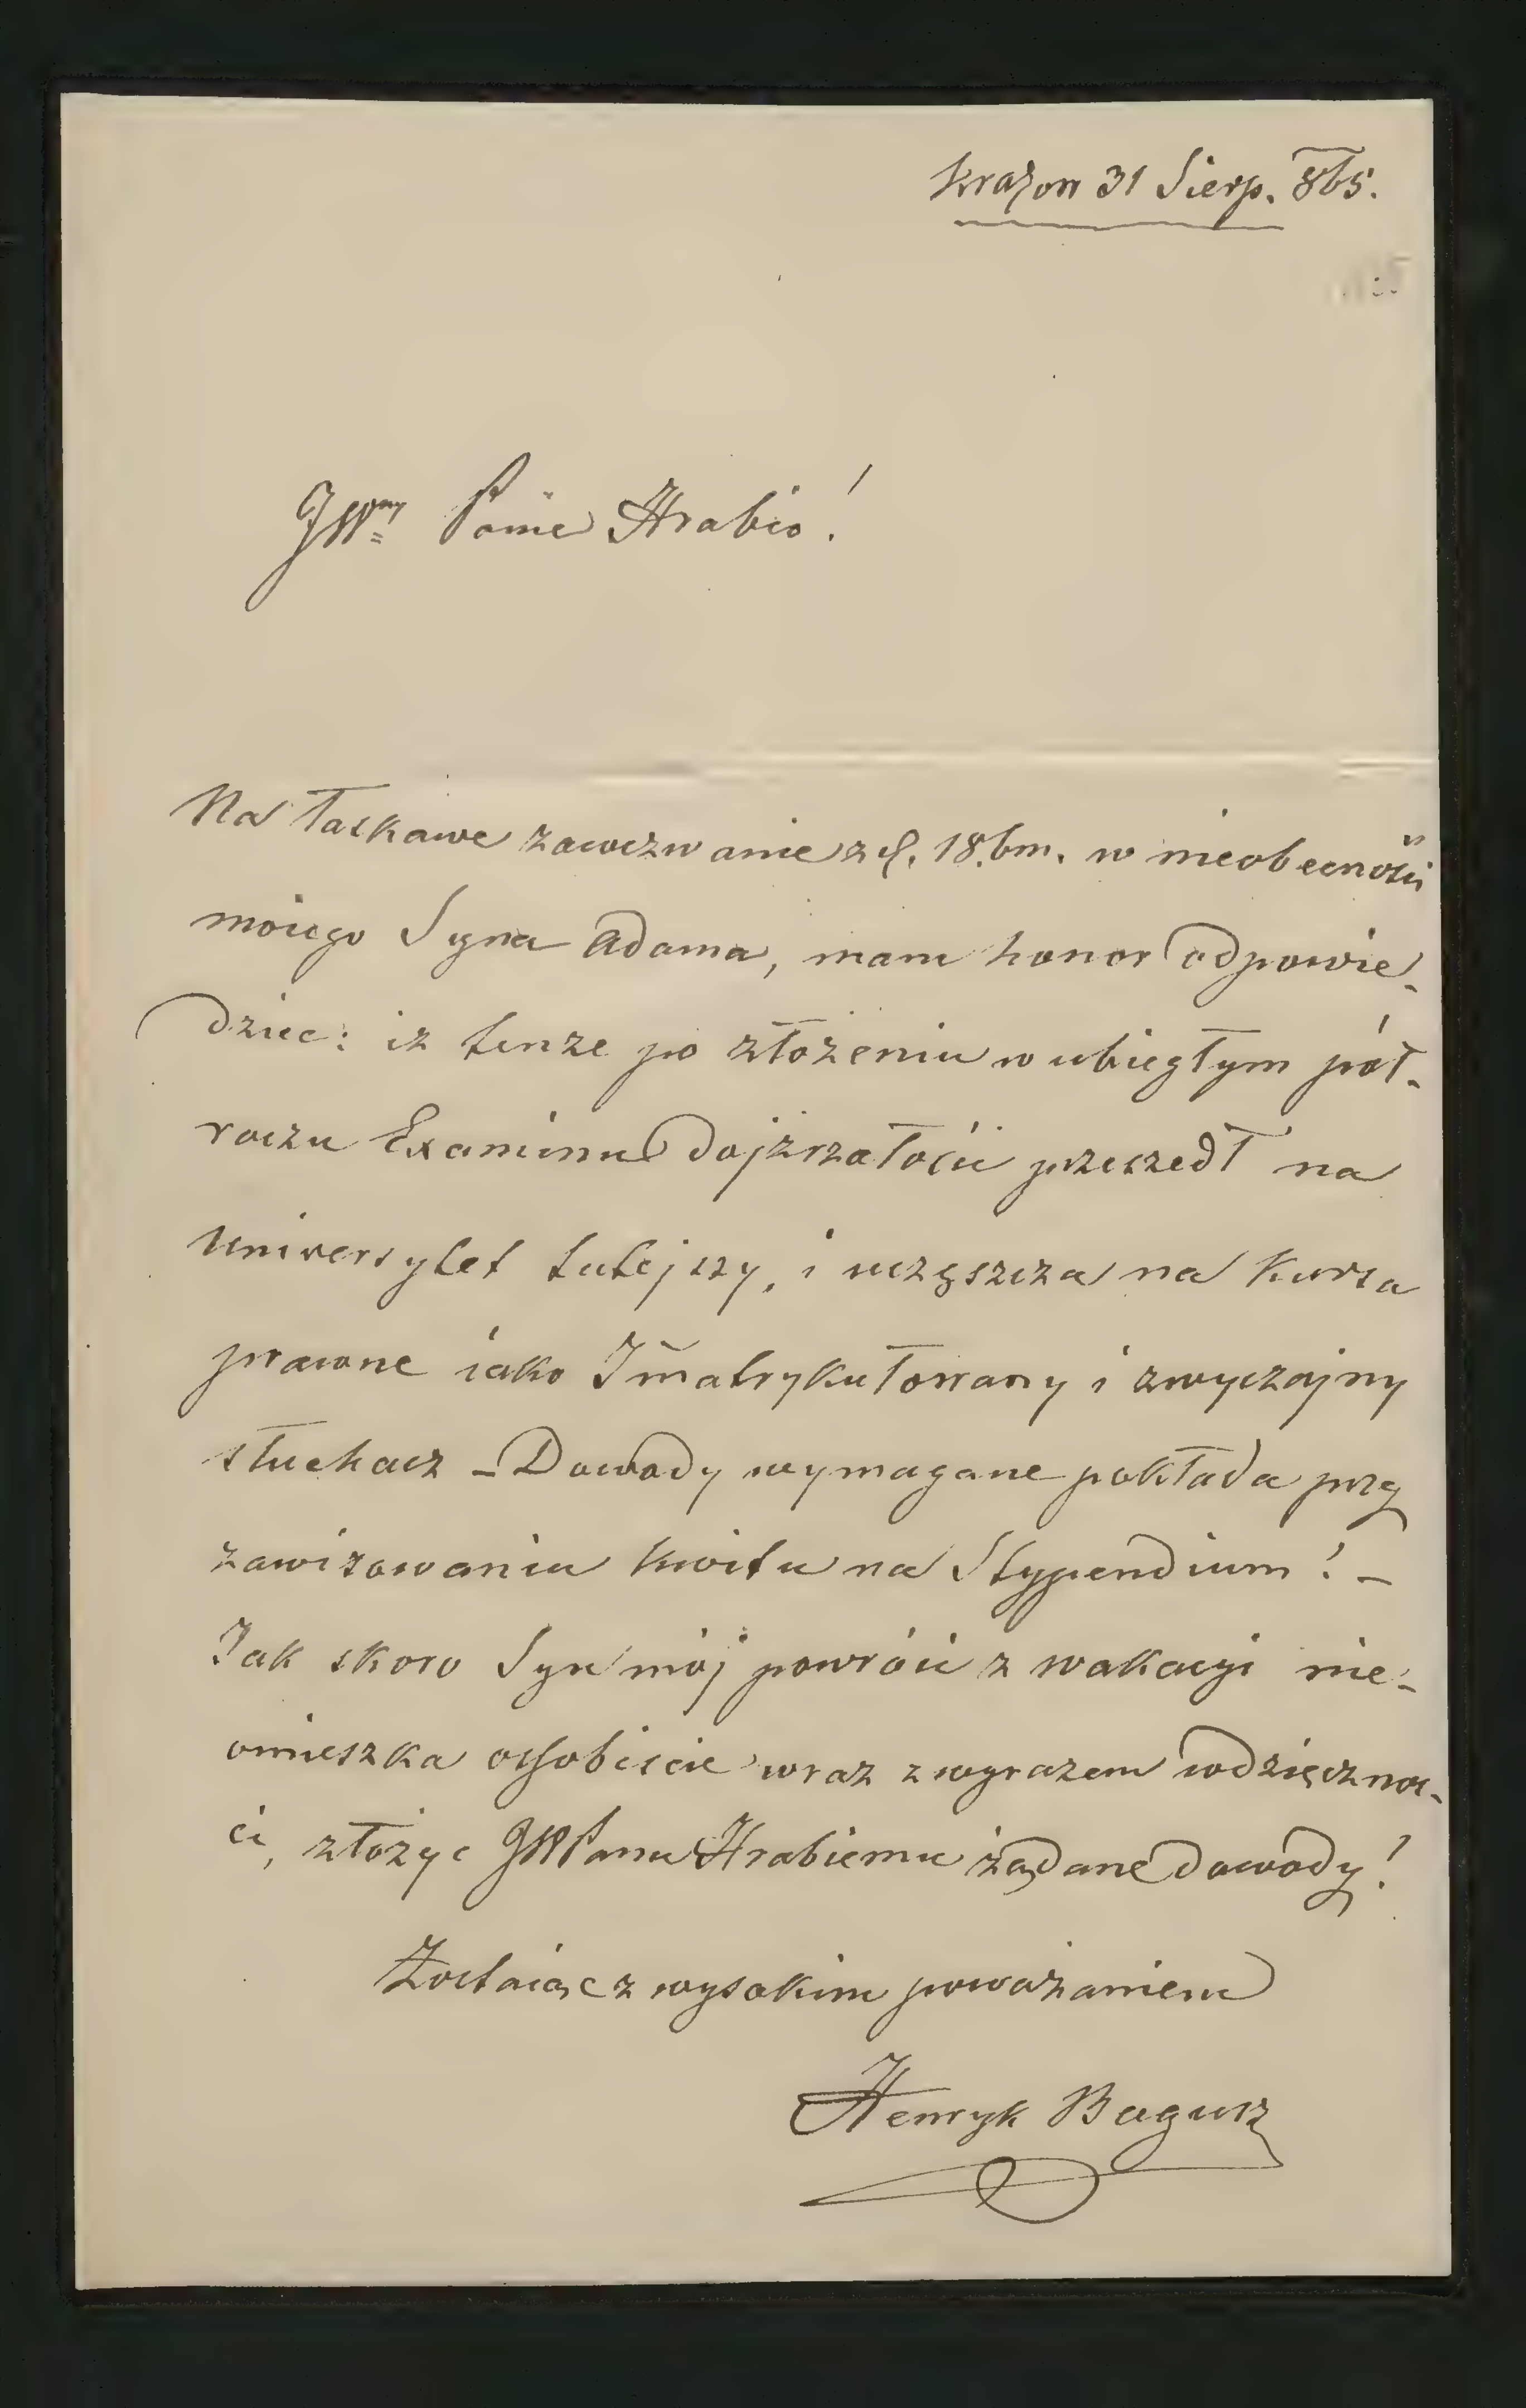 Kraków 31 Sierp. 865.
JWny Panie Hrabio!
Na łaskawe zawezwanie z d. 18. bm. w nieobecności
moiego Syna Adama, mam honor odpowie-
dziec: iż tenże po złożeniu w ubiegłym pół-
roczu Examinu dojzrzałości przeszedł na
Uniwersytet tutejszy, i uczęszcza na Kursa
prawne iako Im̃atrykułowany i zwyczajny
słuchacz – Dowody wymagane pokłada przy
zawizowaniu Kwitu na Stypendium! –
Jak skoro Syn mój powróci z wakacyi nie-
omieszka osobiscie wraz z wyrazem wdzięcznos-
ci, złożyc JWPanu Hrabiemu żądane dowody!
Zostaiąc z wysokim poważaniem
Henryk Bogusz